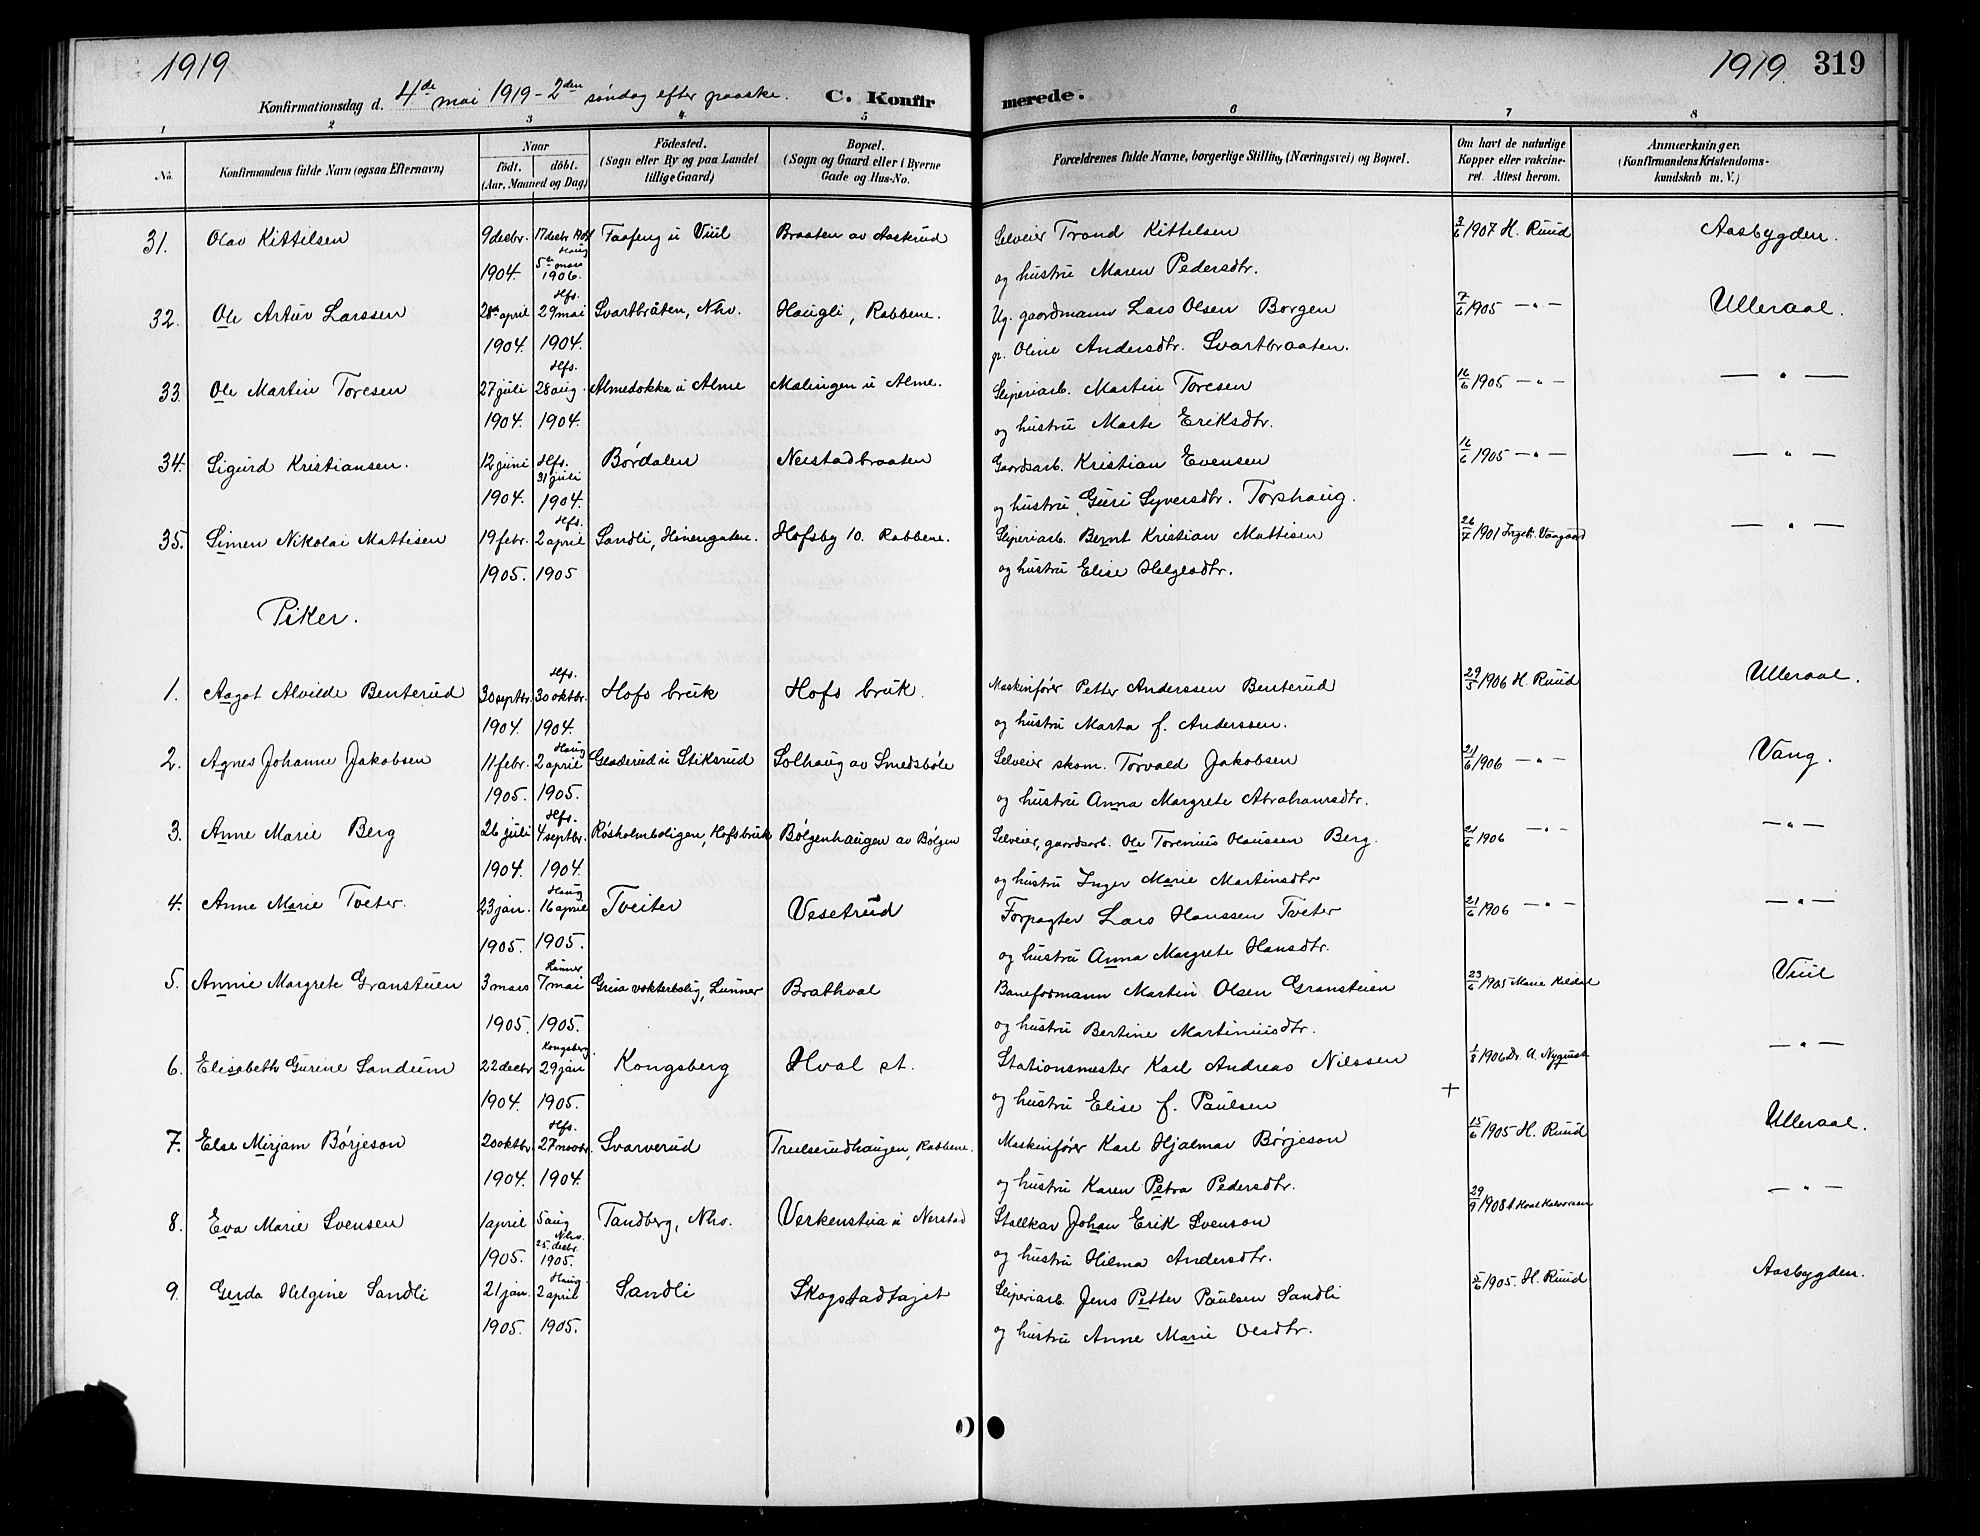 1919
1919. 319
Konfirmationsdag d. 4de mai 1919 - 2den søndag efter paaske. C. Konfirmerede.
1 2 3 4 5 6 7 8
No. Konfirmandens fulde Navn (ogsaa Efternavn) Naar født. døbt. (Aar, Maaned og Dag) Födested. (Sogn eller By og paa Landet tillige Gaard) Bopæl. (Sogn og Gaard eller i Byerne Gade og Hus-No. Forældrenes fulde Navne, borgerlige Stilling (Næringsvei) og Bopæl. Om havt de naturlige Kopper eller vakcineret. Attest herom. Anmærkninger. (Konfirmandens Kristendomskundskab m. V.)
31. Olav Kittilsen 9 decbr. 17 decbr. Faafeng u Viul Braaten av Aaskerud Selveier Trond Kittelsen 3/6 1907 H. Ruud Aasbygden.
1904. Haug 5te mars 1906. og hustru Maren Pedersdtr.
32. Ole Artur Larssen 28de april Hfs. 29 mai Svartbråten, Nhv. Haugli, Rabbene. Ug. gaardmann Lars Olsen Borgen 7/6 1905 — " — Ulleraal.
1904. 1904. p. Oline Andersdtr. Svartbraaten.
33. Ole Martin Toresen 27 juli Hfs. 28 aug. Almedokka u Alme Malingen u Alme. Sliperiarb. Martin Toresen 16/6 1905 — " — — " —
1904. 1904. og hustru Marte Eriksdtr.
34. Sigurd Kristiansen. 12 juni Hfs. 31 juli Børdalen Nerstadbraaten Gaardsarb. Kristian Evensen 16/6 1905 — " — — " —
1904. 1904. og hustru Guri Syversdtr. Torshaug.
35. Simen Nikolai Mattisen 19 febr. Hfs. 2 april Sandli, Hønengaten. Hofsby 10. Rabbene. Sliperiarb. Bernt Kristian Mattisen 26/7 1901 — " —
1905. 1905 og hustru Elise Helgesdtr.
Piker.
1. Aagot Alvilde Benterud 30 septbr. Hfs. 30 oktbr. Hofs bruk Hofs bruk. Maskinfører Petter Anderssen Benterud 29/5 1906 H. Ruud Ulleraal.
1904. 1904. og hustru Marta f. Anderssen.
2. Agnes Johanne Jakobsen 11 febr. Haug 2 april Gladerud u Stiksrud Solhaug av Smedsbøle Selveier skom. Torvald Jakobsen 21/6 1906 — " — Vang.
1905. 1905. og hustru Anna Margrete Abrahamsdtr.
3. Anne Marie Berg 26 juli Hfs. 4 septbr. Røsholmboligen, Hofsbruk Bølgenhaugen av Bølgen Selveier, gaardsarb. Ole Torenius Olaussen Berg. 21/6 1906 — " — — " —
1904. 1904. og hustru Inger Marie Martinsdtr
4. Anne Marie Tveter. 23 jan. Haug 16 april Tveiter Vesetrud Forpagter Lars Hanssen Tveter 21/6 1906 — " — — " —
1905. 1905. og hustru Anna Margrete Hansdtr.
5. Annie Margrete Granstuen 3 mars Lunner 7 mai Grua vokterbolig, Lunner Brathval Baneformann Martin Olsen Gransteien 23/6 1905 Marie Kildal Viul
1905. 1905. og hustru Bertine Martiniusdtr.
6. Elisabeth Gurine Sandum 22 decbr Kongsberg. 29 jan Kongsberg Hval st. Stationsmester Karl Andreas Nilssen 1/8 1906 Dr. A. Nyquist — " —
1904. 1905. og hustru Elise f. Paulsen +
7. Else Mirjam Börjeson 20 oktbr Hfs. 27 novbr. Svarverud Trulserudhaugen, Rabbene. Maskinfører Karl Hjalmar Börjeson 15/6 1905 H. Ruud Ulleraal.
1904. 1904. og hustru Karen Petra Pedersdtr.
8. Eva Marie Svensen 1 april 5 aug Tandberg, Nhv. Verkenstua u Nerstad Stallkar Johan Erik Svenson 29/9 1908 — " —
1905. Nhv. 25. decbr. 1905. og hustru Hilma Andersdtr.
9. Gerda Helgine Sandli 21 jan. Haug. 2 april Sandli Skogstadtajet Sliperiarb. Jens Petter Paulsen Sandli 5/6 1905. H. Ruud Aasbygden.
1905. 1905. og hustru Anne Marie Olsdtr.